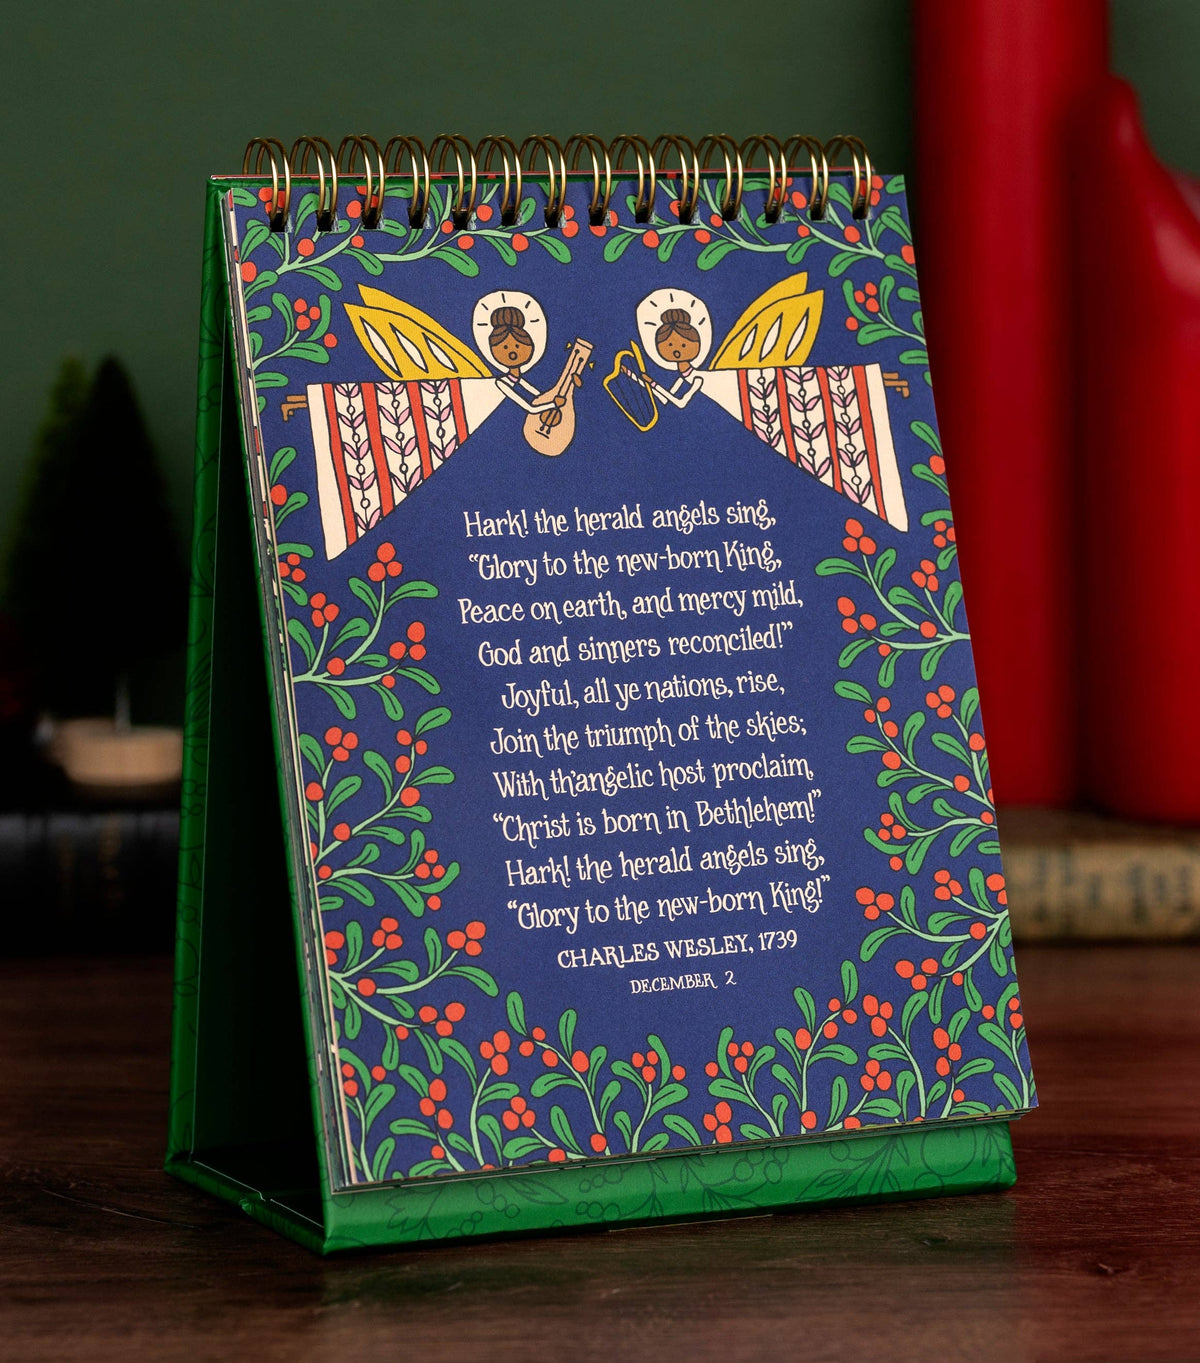 Hark! the herald angels sing,
“Glory to the new-born King,
Peace on earth, and mercy mild,
God and sinners reconciled!”
Joyful, all ye nations, rise,
Join the triumph of the skies;
With th'angelic host proclaim,
“Christ is born in Bethlehem!”
Hark! the herald angels sing,
“Glory to the new-born King!”
CHARLES WESLEY, 1739
DECEMBER 2